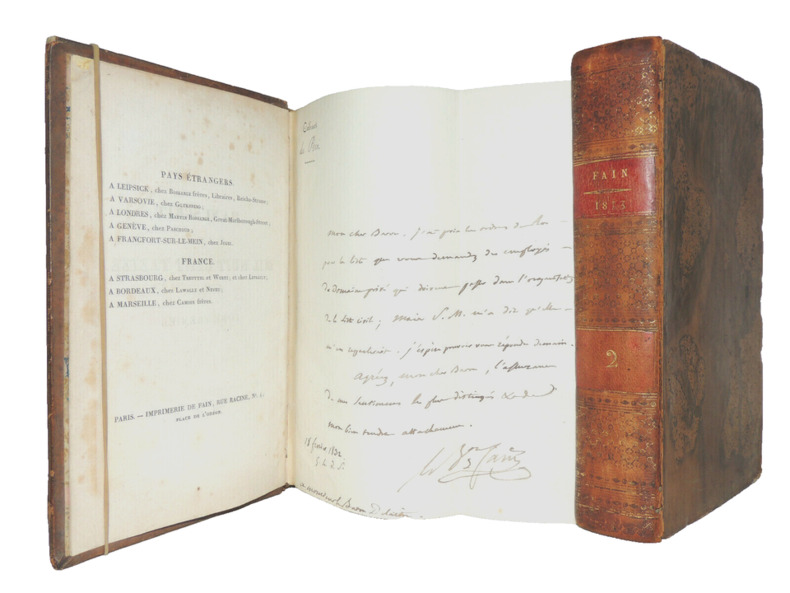 PAYS ÉTRANGERS.
A LEIPSICK, chez Bossange frères, Libraires, Reichs-Strass;
A VARSOVIE, chez Glüksberg;
A LONDRES, chez Martin Bossange, Great-Marlborough-Street;
A GENÈVE, chez Paschoud;
A FRANCFORT-SUR-LE-MEIN, chez Jugel.
FRANCE.
A STRASBOURG, chez Treuttel et Wurtz; et chez Levrault;
A BORDEAUX, chez Lawalle et Neveu;
A MARSEILLE, chez Camoin frères.
PARIS. — IMPRIMERIE DE FAIN, RUE RACINE, N°. 4,
PLACE DE L'ODÉON.
Cabinet
du Roi
mon cher Baron, j'ai pris les ordres du Roi
sur la liste que vous demandez des employés
du domaine privé qui doivent passer dans l'organisation
de la liste civile; mais S. M. m'a dit qu'elle
j'espère pouvoir vous répondre demain.
Agréez, mon cher Baron, l'assurance
de mes sentimens les plus distingués &
mon bien tendre attachement.
18 février 1832
Bn Fain
a monsieur le Baron
FAIN
1813
2